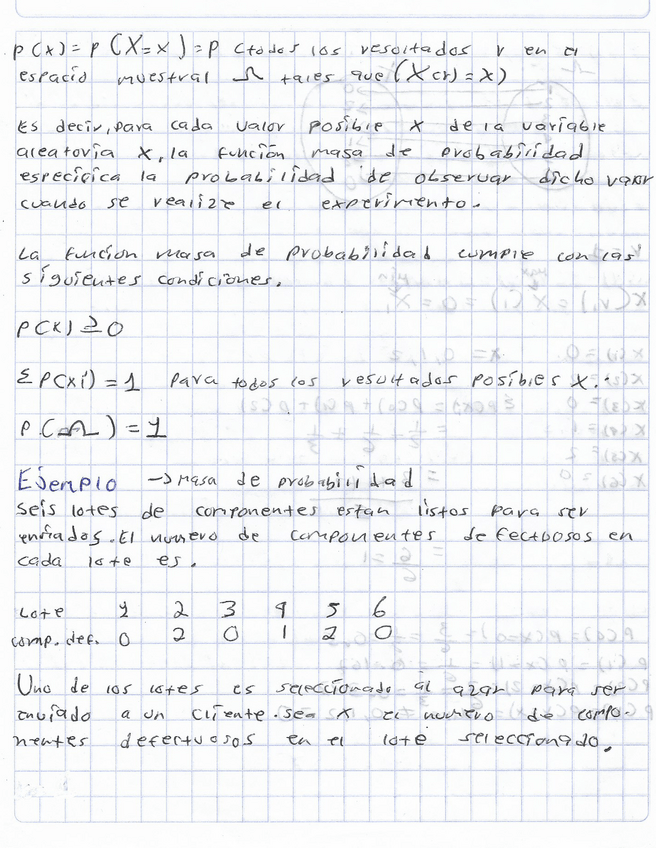 P(x) = P(X=x) = P (todos los resultados r en el
espacio muestral Ω tales que (X(r) = x)
Es decir, para cada valor posible x de la variable
aleatoria x, la función masa de probabilidad
especifica la probabilidad de observar dicho valor
cuando se realize el experimento.
La función masa de probabilidad cumple con las
siguientes condiciones.
P(x) ≥ 0
Σ P(xi) = 1 para todos los resultados posibles x.
P(Ω) = 1
Ejemplo → Masa de probabilidad
Seis lotes de componentes estan listos para ser
enviados. El numero de componentes defectuosos en
cada lote es.
Lote 1 2 3 4 5 6
comp. def. 0 2 0 1 2 0
Uno de los lotes es seleccionado al azar para ser
enviado a un cliente. sea x el numero de compo-
nentes defectuosos en el lote seleccionado.